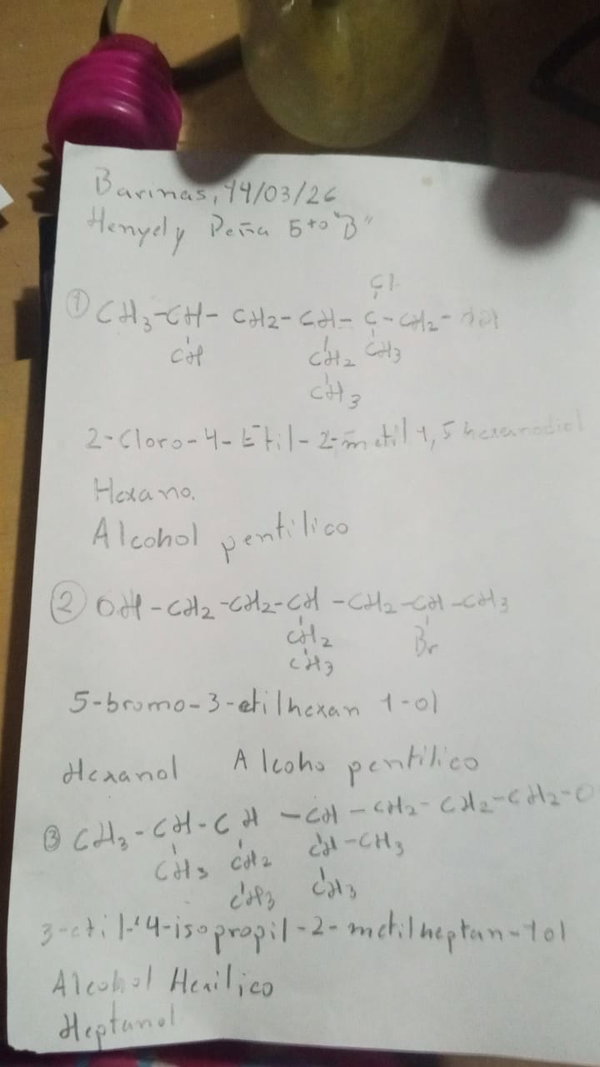 Barinas, 14/03/26
Henyely Peña 5to "B"
Cl
① CH3-CH- CH2- CH- C -CH2-
CH CH2 CH3
CH3
2-Cloro-4-Etil-2-metil 1,5 hexanodiol
Hexano.
Alcohol pentilico
② OH-CH2-CH2-CH -CH2-CH-CH3
CH2 Br
CH3
5-bromo-3-etilhexan 1-ol
Hexanol Alcoho pentilico
③ CH3-CH-CH -CH-CH2-CH2-CH2-O
CH3 CH2 CH-CH3
CH3 CH3
3-etil-4-isopropil-2-metilheptan-1ol
Alcohol Hexilico
Heptanol